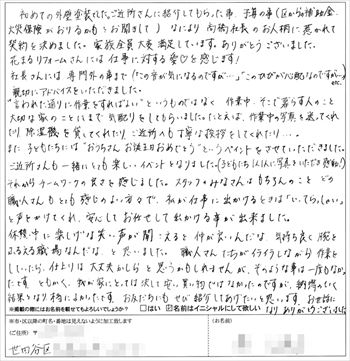 初めての外壁塗装でしたが、ご近所さんに紹介してもらった事、予算の事(区からの補助金、
火災保険がおりるかも…とお聞きして) なにより 高橋社長のお人柄に惹かれて
契約を決めました。家族全員大変満足しています。ありがとうございました。
花まるリフォームさんには仕事に対する愛を感じます!
社長さんには、専門外の事まで(“この音が気になるのですが…”“このカビが心配なのですが…”etc.)
親切にアドバイスをいただきました。
“言われた通りに作業をすればいい”というものではなく、作業中、そこで暮らす人のこと
大切な家のことにまで気配りをしてもらいました。(たとえば、作業中の写真を送ってくれ
たり、除湿機を貸してくれたり、ご近所へも丁寧な挨拶をしてくれたり…。)
また子どもたちには“おうちさんお誕生日おめでとう”というイベントをさせていただきました。
ご近所さんも一緒にとても楽しいイベントとなりました。(子どもたち1人1人に写真をいただき感動!)
それからチームワークの良さを感じました。スタッフのみなさんはもちろんのこと、どの
職人さんもとても感じのよい方々で、私が仕事に出かけるときは「いってらっしゃい」
と声をかけてくれ、安心してお任せして出かける事が出来ました。
休憩中に楽しげな笑い声が聞こえると仲が良いんだな、気持ち良く腕を
ふるえる職場なんだな、と思いました。職人さんたちがイライラしながら作業を
していたら、仕上りは大丈夫かしらと思うかもしれませんが、そのような事は一度もなかっ
たです。ともかく、我が家にとっては決して安い買い物ではなかったのですが、納得のいく
結果となり本当によかったです。お友だちにもぜひ紹介してあげたいと思います。お世話に
なりありがとうございました
※掲載の際にはお名前を載せてもよろしいでしょうか? □はい ☑名前をイニシャルにして欲しい
※市・区以降の町名・番地は見えないように加工致します
〈ご住所〉 〈お名前〉
世田谷区